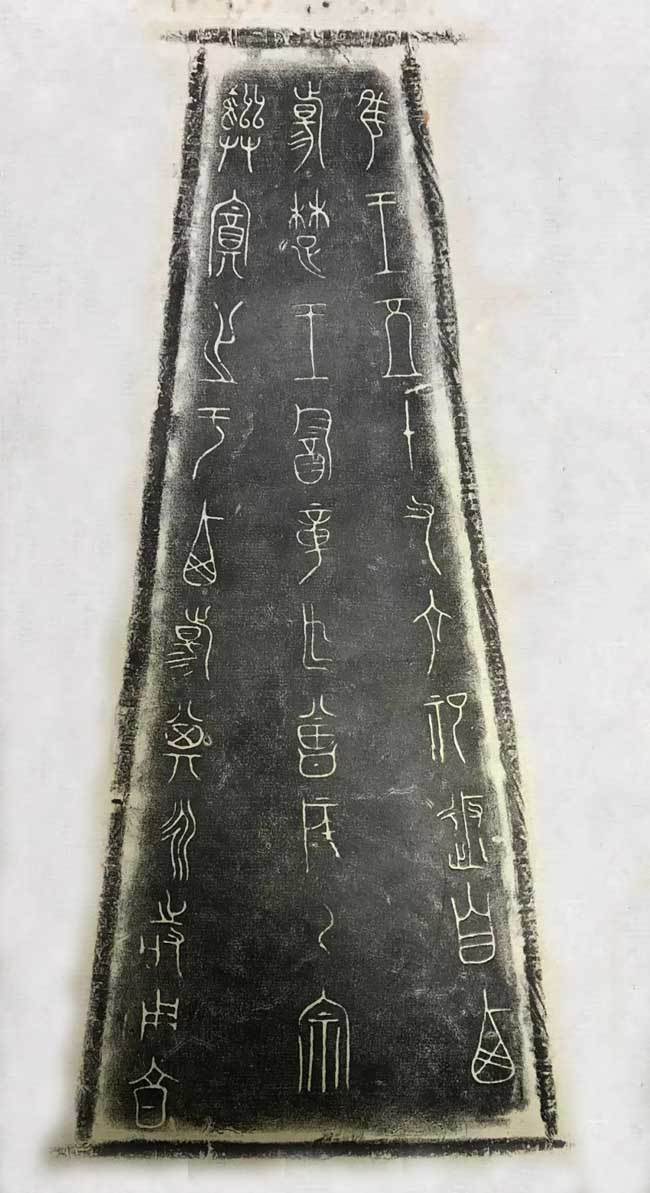 隹王五十又六祀返自西
𬀩楚王酓章乍曾侯乙宗
彝寘之于西𬀩其永持用享